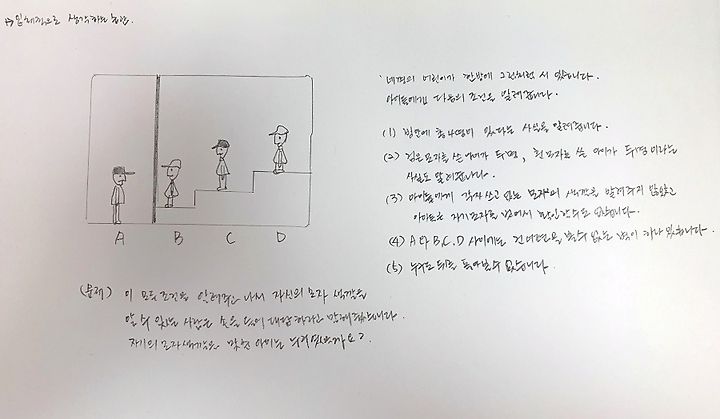 입체적으로 생각하는 방법.
네명의 어린이가 한방에 그림처럼 서 있습니다.
아이들에게 다음의 조건을 알려줍니다.
(1) 방안에 총 4명이 있다는 사실을 알려줍니다.
(2) 검은 모자를 쓴 아이가 두명, 흰 모자를 쓴 아이가 두명이라는
사실도 알려줍니다.
(3) 아이들에게 각자 쓰고 있는 모자의 색깔을 알려주지 않았고
아이들은 자기모자를 벗어서 확인할수도 없습니다.
(4) A와 B,C,D 사이에는 건너편을 볼수 없는 벽이 하나 있습니다.
(5) 누구도 뒤를 돌아볼수 없습니다.
A B C D
(문제) 이 모든 조건을 알려주고 나서 자신의 모자 색깔을
알 수 있는 사람은 손을 들어 대답하라고 말해주었습니다
자기의 모자색깔을 맞힌 아이는 누구였을까요?